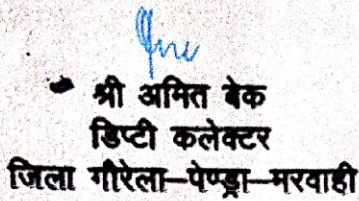 श्री अमित बेक
डिप्टी कलेक्टर
जिला गौरेला–पेण्ड्रा–मरवाही